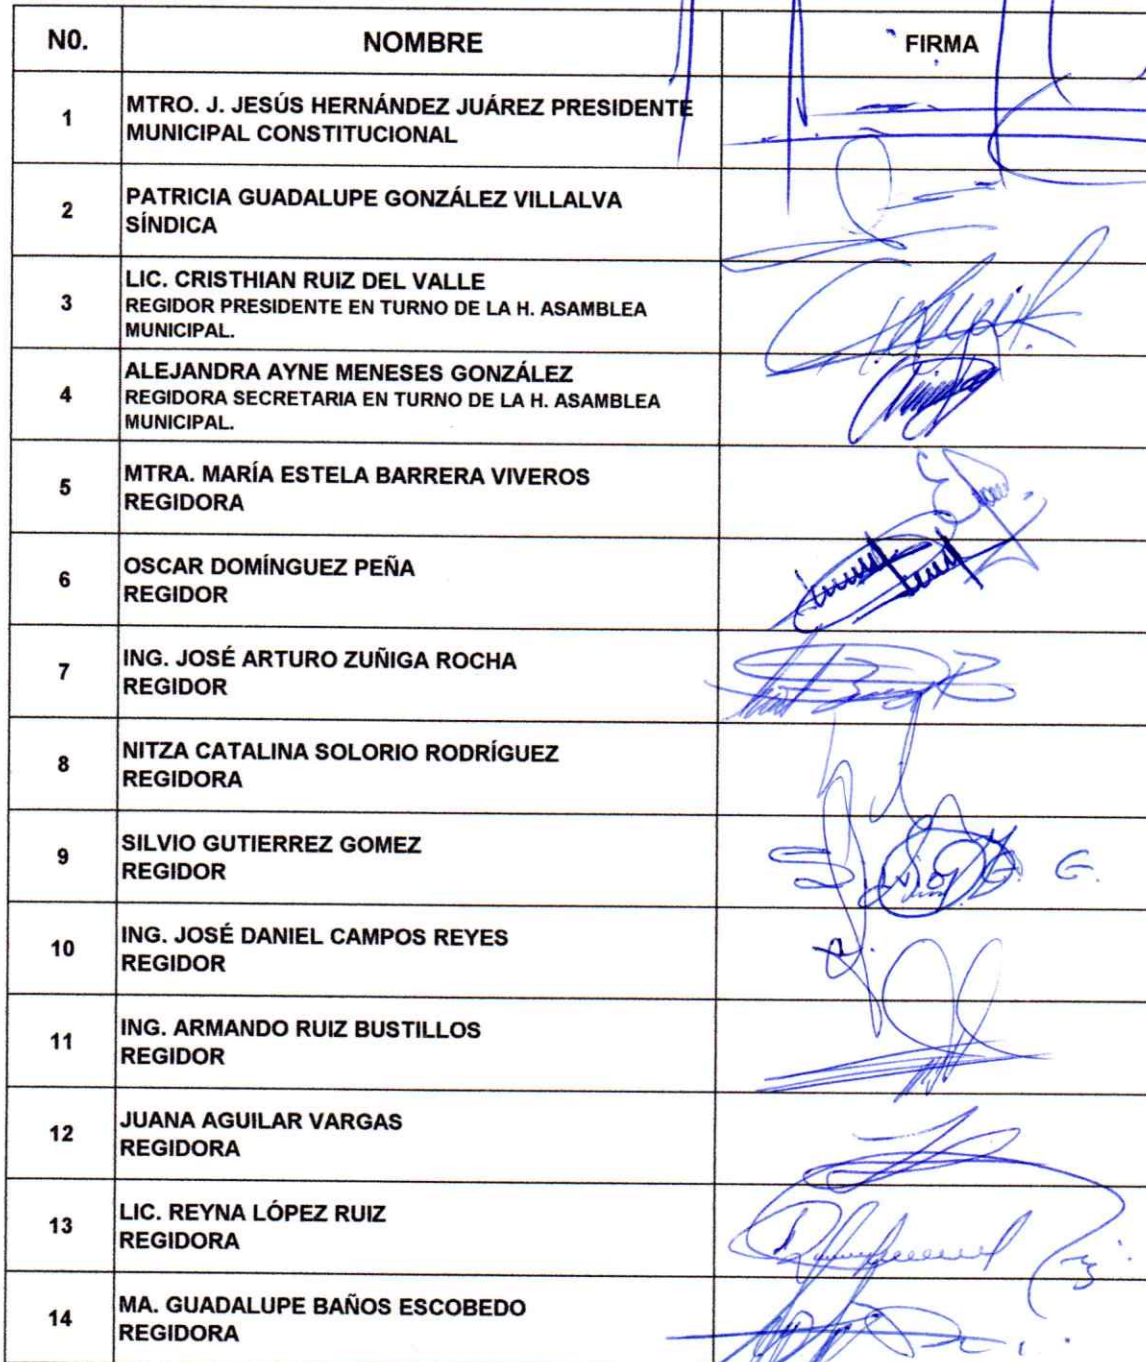 N0. NOMBRE FIRMA
1 MTRO. J. JESÚS HERNÁNDEZ JUÁREZ PRESIDENTE
MUNICIPAL CONSTITUCIONAL
2 PATRICIA GUADALUPE GONZÁLEZ VILLALVA
SÍNDICA
3 LIC. CRISTHIAN RUIZ DEL VALLE
REGIDOR PRESIDENTE EN TURNO DE LA H. ASAMBLEA
MUNICIPAL.
4 ALEJANDRA AYNE MENESES GONZÁLEZ
REGIDORA SECRETARIA EN TURNO DE LA H. ASAMBLEA
MUNICIPAL.
5 MTRA. MARÍA ESTELA BARRERA VIVEROS
REGIDORA
6 OSCAR DOMÍNGUEZ PEÑA
REGIDOR
7 ING. JOSÉ ARTURO ZUÑIGA ROCHA
REGIDOR
8 NITZA CATALINA SOLORIO RODRÍGUEZ
REGIDORA
9 SILVIO GUTIERREZ GOMEZ
REGIDOR
G.
10 ING. JOSÉ DANIEL CAMPOS REYES
REGIDOR
11 ING. ARMANDO RUIZ BUSTILLOS
REGIDOR
12 JUANA AGUILAR VARGAS
REGIDORA
13 LIC. REYNA LÓPEZ RUIZ
REGIDORA
14 MA. GUADALUPE BAÑOS ESCOBEDO
REGIDORA